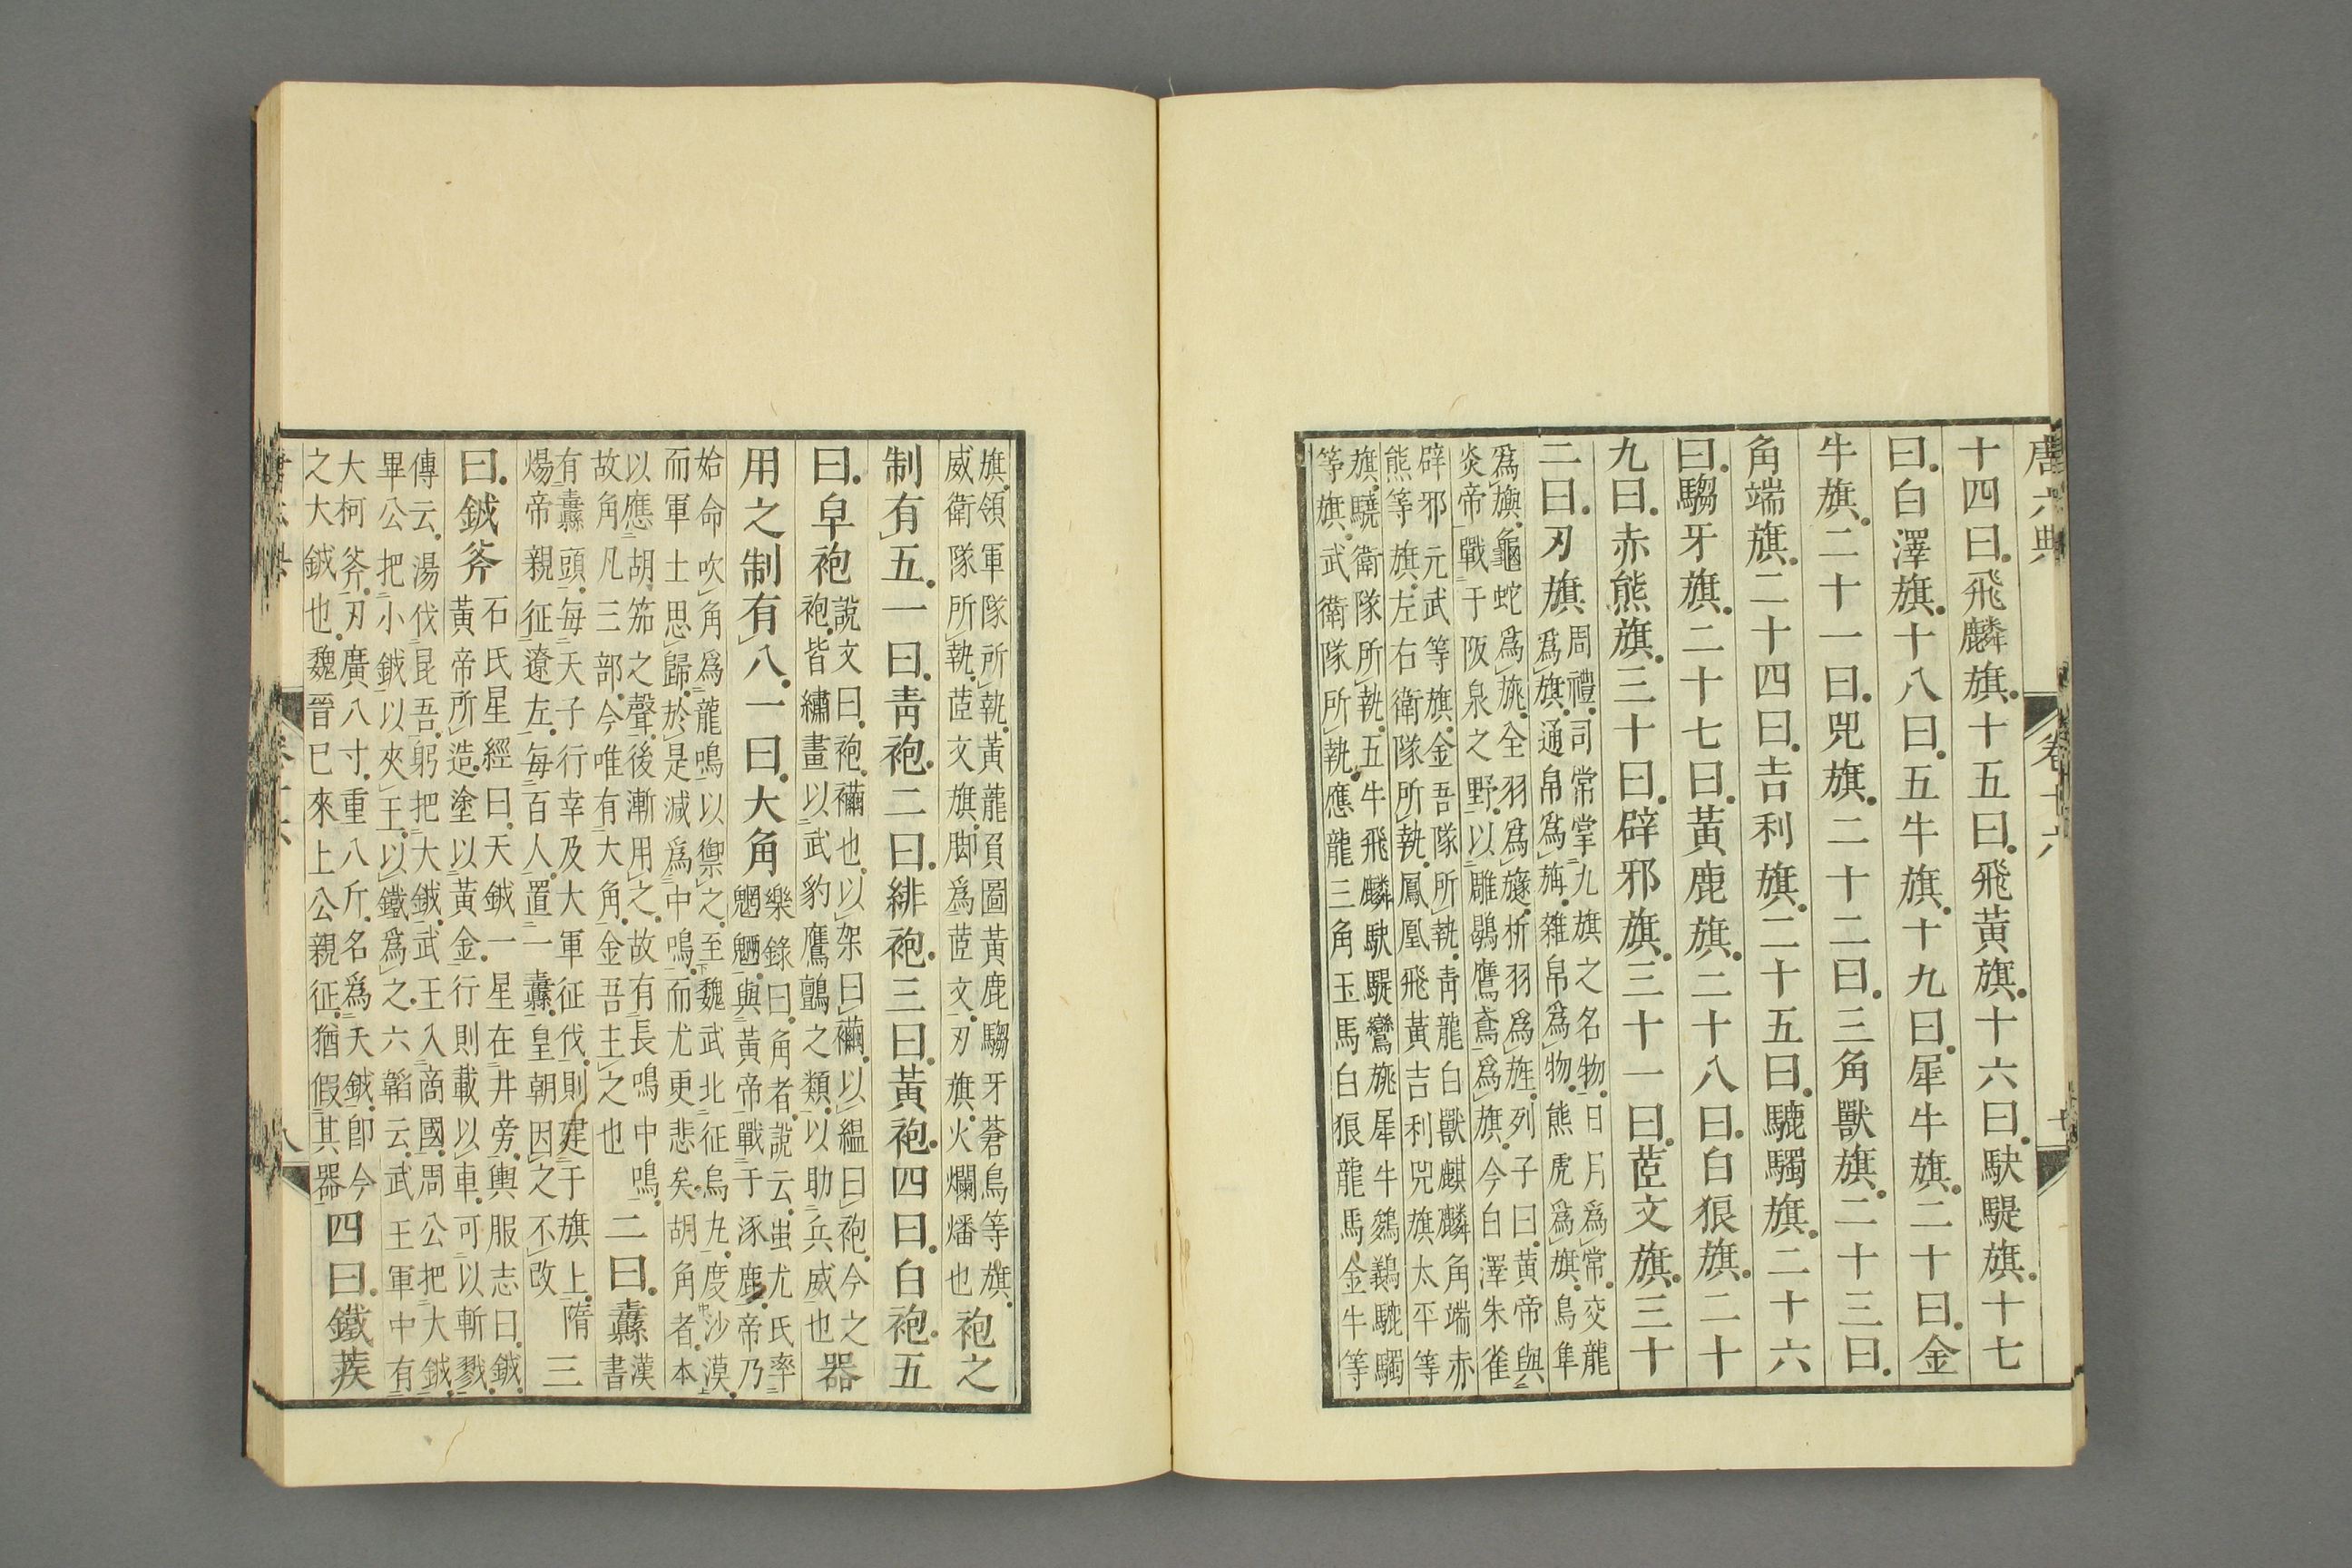 唐六典 卷十六
十四曰飛麟旗十五曰飛黃旗十六曰駃騠旗十七
曰白澤旗十八曰五牛旗十九曰犀牛旗二十曰金
牛旗二十一曰兕旗二十二曰三角獸旗二十三曰
角端旗二十四曰吉利旗二十五曰騼䮷旗二十六
曰騶牙旗二十七曰黃鹿旗二十八曰白狼旗二十
九曰赤熊旗三十曰辟邪旗三十一曰苣文旗三十
二曰刃旗
周禮司常掌九旗之名物日月爲常交龍
爲旗通帛爲旃雜帛爲物熊虎爲旗鳥隼
爲旟龜蛇爲旐全羽爲旞析羽爲旌列子曰黃帝與
炎帝戰于阪泉之野以雕鶡鷹鳶爲旗今白澤朱雀
辟邪元武等旗金吾隊所執靑龍白獸麒麟角端赤
熊等旗左右衛隊所執鳳凰飛黃吉利兕旗太平等
旗驍衛隊所執五牛飛麟駃騠鸞旐犀牛鵕鸃騼䮷
等旗武衛隊所執應龍三角玉馬白狼龍馬金牛等
旗領軍隊所執黃龍負圖黃鹿騶牙蒼烏等旗
威衛隊所執苣文旗脚爲苣文刃旗火爛燔也
袍之
制有五一曰靑袍二曰緋袍三曰黃袍四曰白袍五
曰皁袍
說文曰袍襺也以絮曰襺以縕曰袍今之
袍皆繡畫以武豹鷹鸇之類以助兵威也
器
用之制有八一曰大角
樂錄曰角者說云蚩尤氏率
魍魎與黃帝戰于涿鹿帝乃
始命吹角爲龍鳴以禦之至魏武北征烏丸度沙漠
而軍士思歸於是減爲中鳴而尤更悲矣胡角者本
以應胡笳之聲後漸用之故有長鳴中鳴
故角凡三部今唯有大角金吾主之也
二曰纛
漢
書
有纛頭每天子行幸及大軍征伐則建于旗上隋
煬帝親征遼左每百人置一纛皇朝因之不改
三
曰鉞斧
石氏星經曰天鉞一星在井旁輿服志曰鉞
黃帝所造塗以黃金行則載以車可以斬戮
傳云湯伐昆吾躬把大鉞武王入商國周公把大鉞
畢公把小鉞以夾王以鐵爲之六韜云武王軍中有
大柯斧刃廣八寸重八斤名爲天鉞即今
之大鉞也魏晉已來上公親征猶假其器
四曰鐵蒺